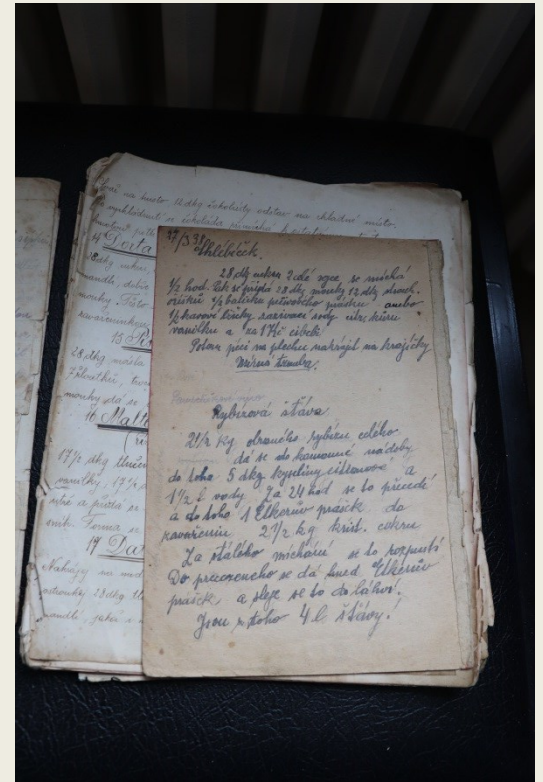 dkg čokolády
na chladné místo.
14 Dorta
mandle, dobře
mouky
28 dkg másla
mouky dá se
16 Malt
17 1/2 dkg
vanilky, 17 1/2
utře a přidá se
sník. Forma se
17 Da
28 dkg
mandle,
27/3 38
Chlebíček.
28 dkg cukru 2 celé vejce, se míchá
1/2 hod. Pak se přidá 28 dkg mouky 12 dkg strouh.
oříšků 1/2 balíčku pečivového prášku anebo
1/2 kávové lžičky zažívací sody citr. kůru
vanilku a za 1 Kč cibéb.
Potom péci na plechu nakrájet na krajíčky
Mírná trouba.
Rybízová šťáva.
2 1/2 kg obraného rybízu celého
dá se do kamenné nádoby
do toho 5 dkg kyseliny citronové a
1 1/2 l vody. Za 24 hod se to přecedí
a do toho 1 Etkerův prášek do
zavařenin 2 1/2 kg krist. cukru
Za stálého míchání se to rozpustí
Do přecezeného se dá hned Etkerův
prášek a sleje se to do láhví.
Jsou z toho 4 l šťávy!